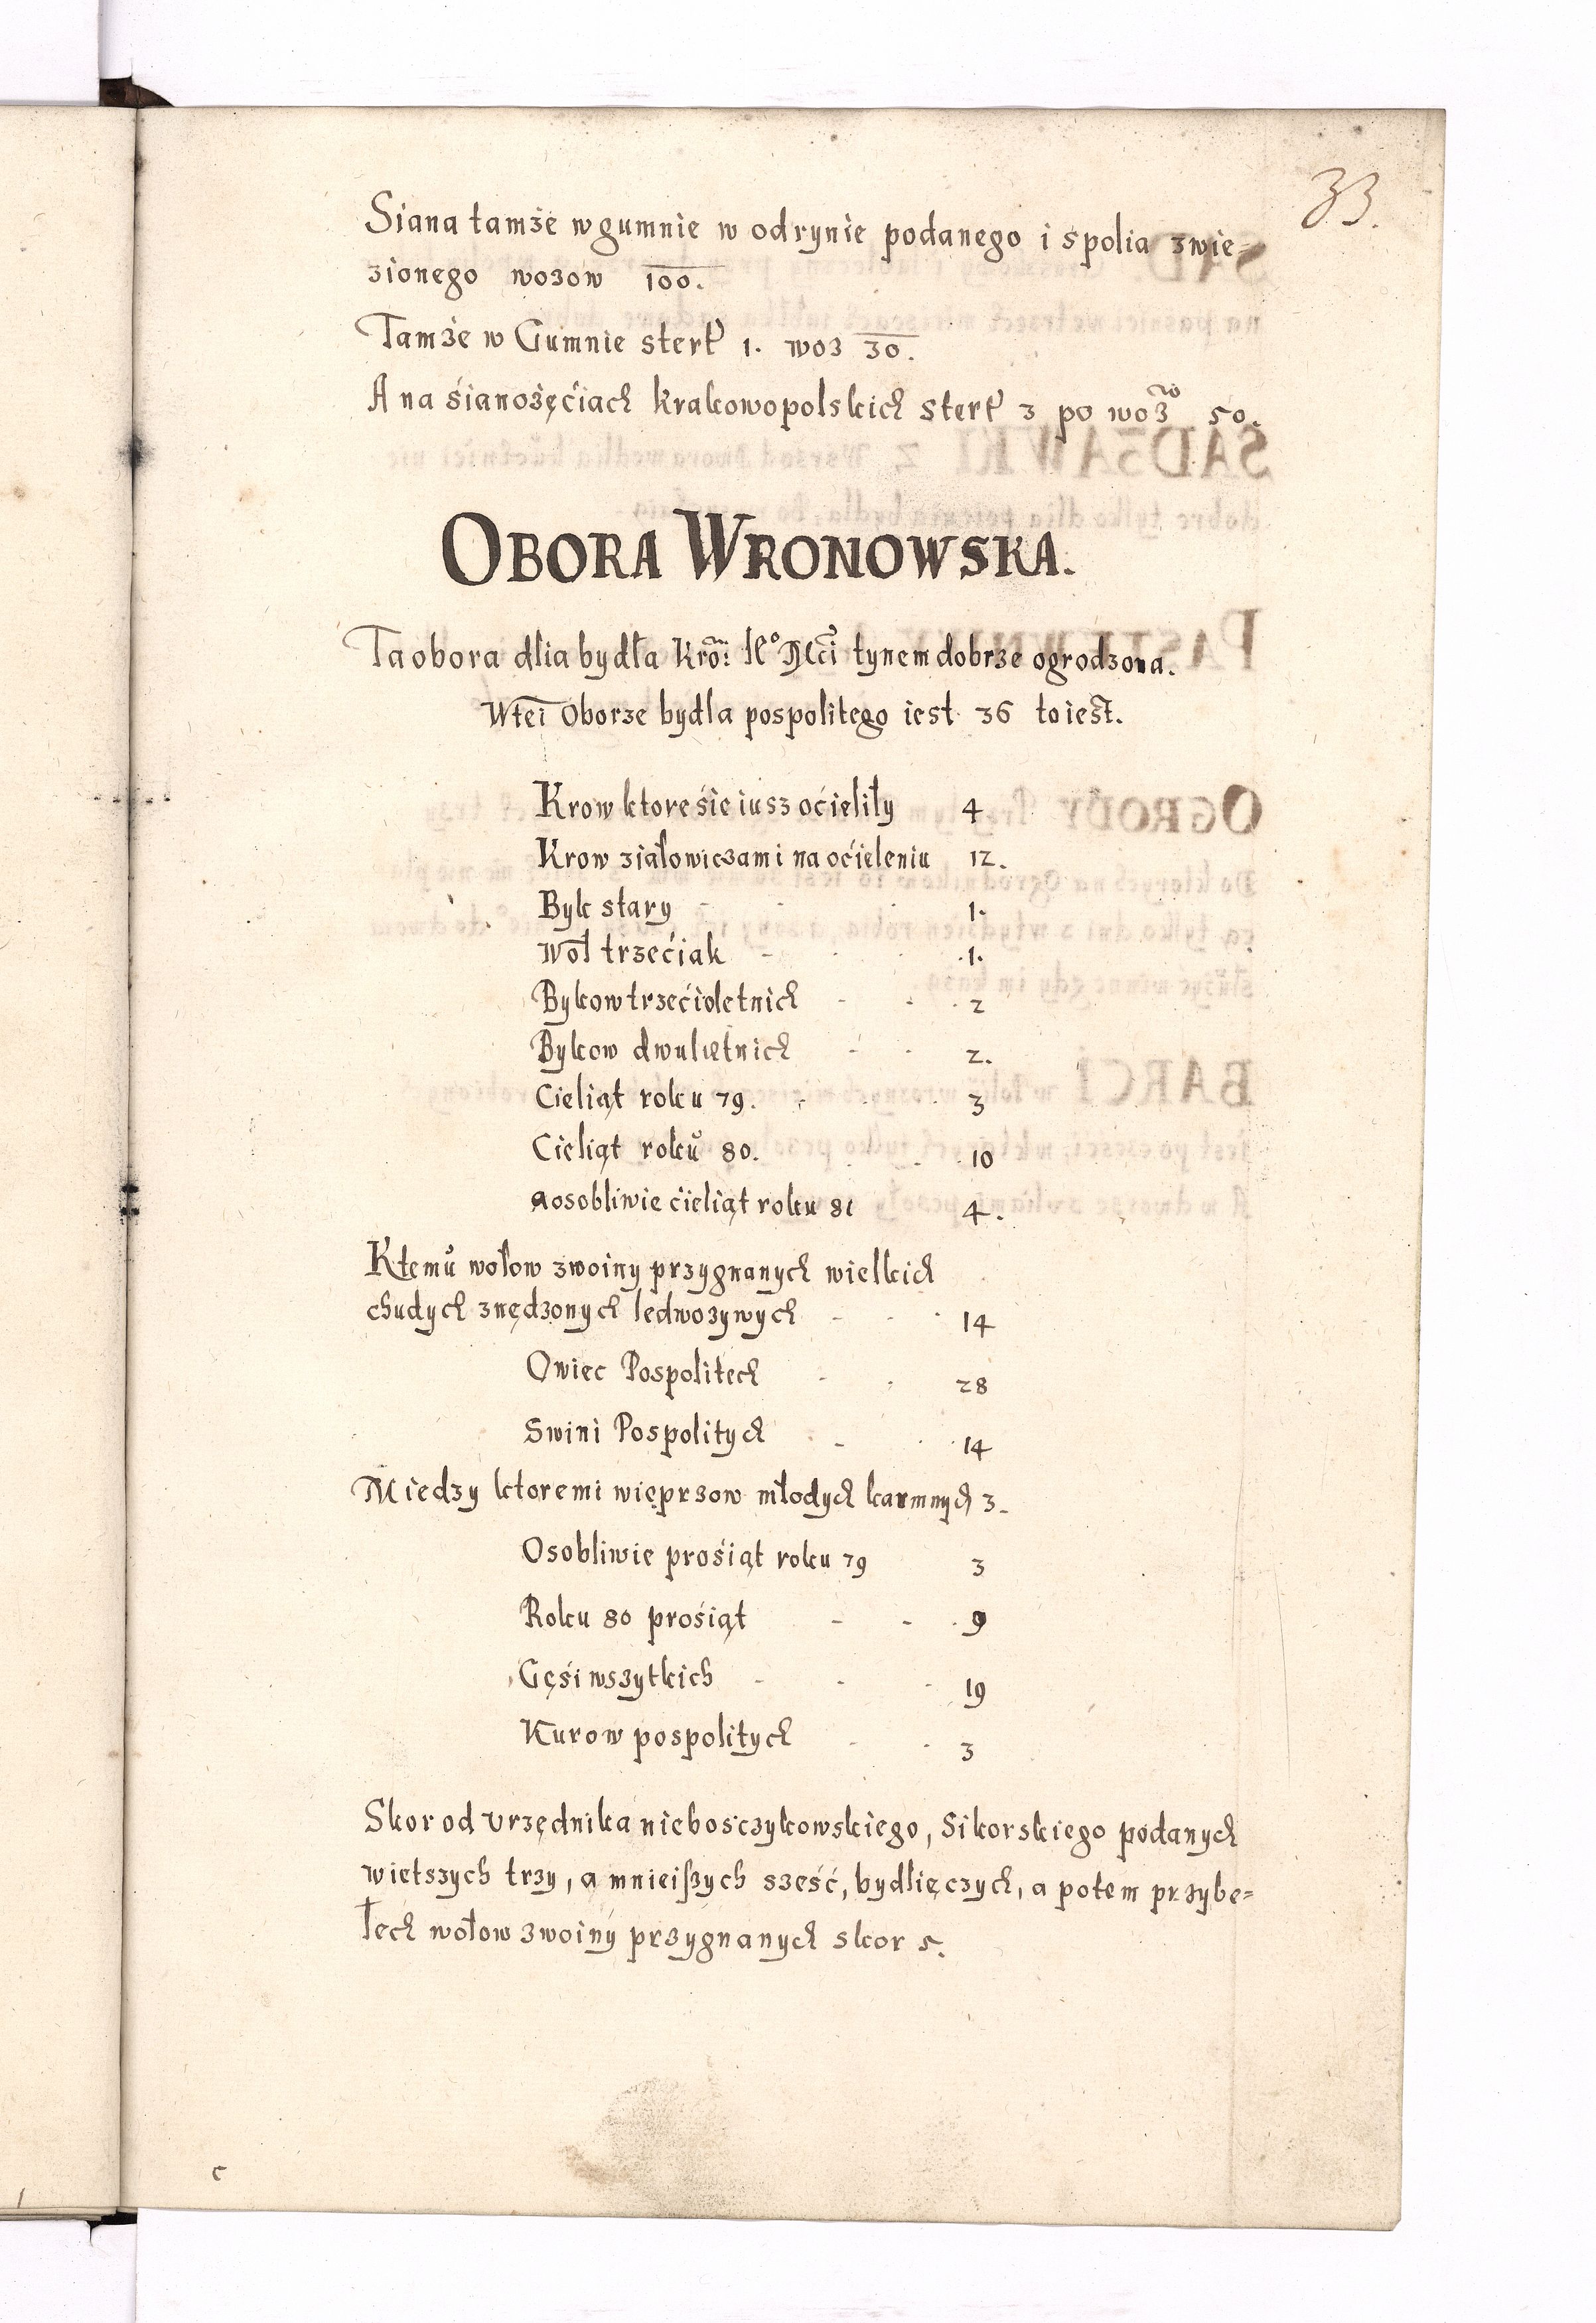 33.
Siana tamże w gumnie w odrynie podanego i spolia zwie=
zionego wozow 100.
Tamże w Gumnie stert 1. woz 30.
A na śianożęćiach krakowopolskich stert 3 po wozw 50.
OBORA WRONOWSKA.
Ta obora dlia bydła Kro: Ko Mci tynem dobrze ogrodzona.
Wtei Oborze bydla pospolitego iest 36 to iest.
Krow ktore śie iusz oćieliły 4
Krow ziałowiczami na oćieleniu 12.
Byk stary 1.
Woł trzećiak 1.
Bykow trzećioletnich 2
Bykow dwulietnich 2.
Cieliąt roku 79. 3
Cieliąt roku 80. 10
a osobliwie ćieliąt roku 81 4.
Ktemu wołow zwoiny przygnanych wielkich
chudych znędzonych ledwozywych 14
Owiec Pospolitech 28
Swini Pospolitych 14
Miedzy ktoremi wieprzow młodych karmnych 3.
Osobliwie prośiąt roku 79 3
Roku 80 prośiąt 9
Gęśi wszytkich 19
Kurow pospolitych 3
Skor od vrzędnika nieboszczykowskiego, Sikorskiego podanych
wietszych trzy, a mnieiszych sześć, bydlięczych, a potem przybe=
łech wołow zwoiny przygnanych skor 5.
c